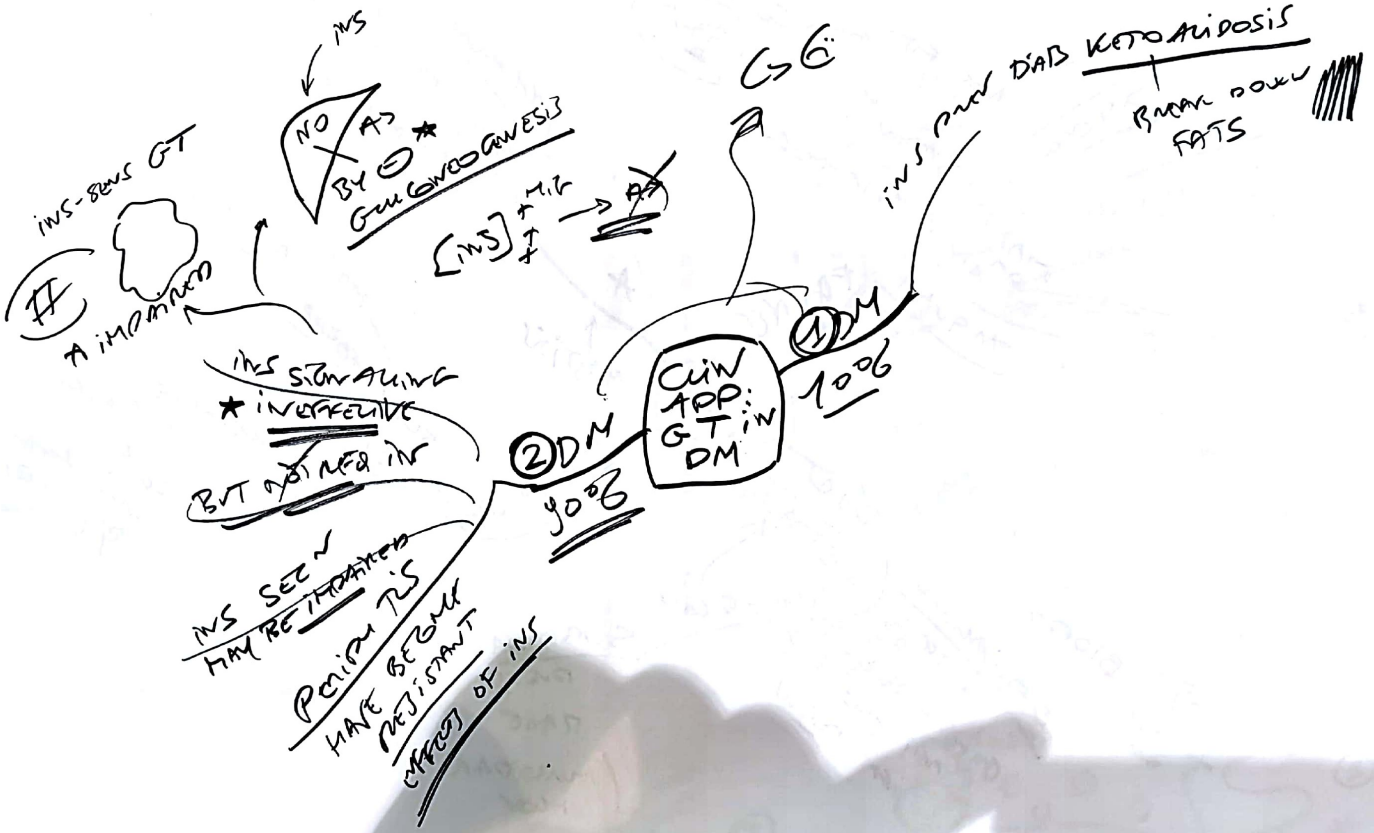 CLIN
APP:
GT in
DM
① DM
10%
ins prev DIAB KETOACIDOSIS
BREAK DOWN
FATS
② DM
90%
ins SIGNALING
★ INEFFECTIVE
BUT
ins SECN
MAY BE IMPAIRED
PERIPH TIS
HAVE BECOME
RESISTANT
EFFECTS OF ins
ins-SENS GT
#
IMPAIRED
ins
NO
BY ⊖ ★
GLUCONEOGENESIS
[ins]